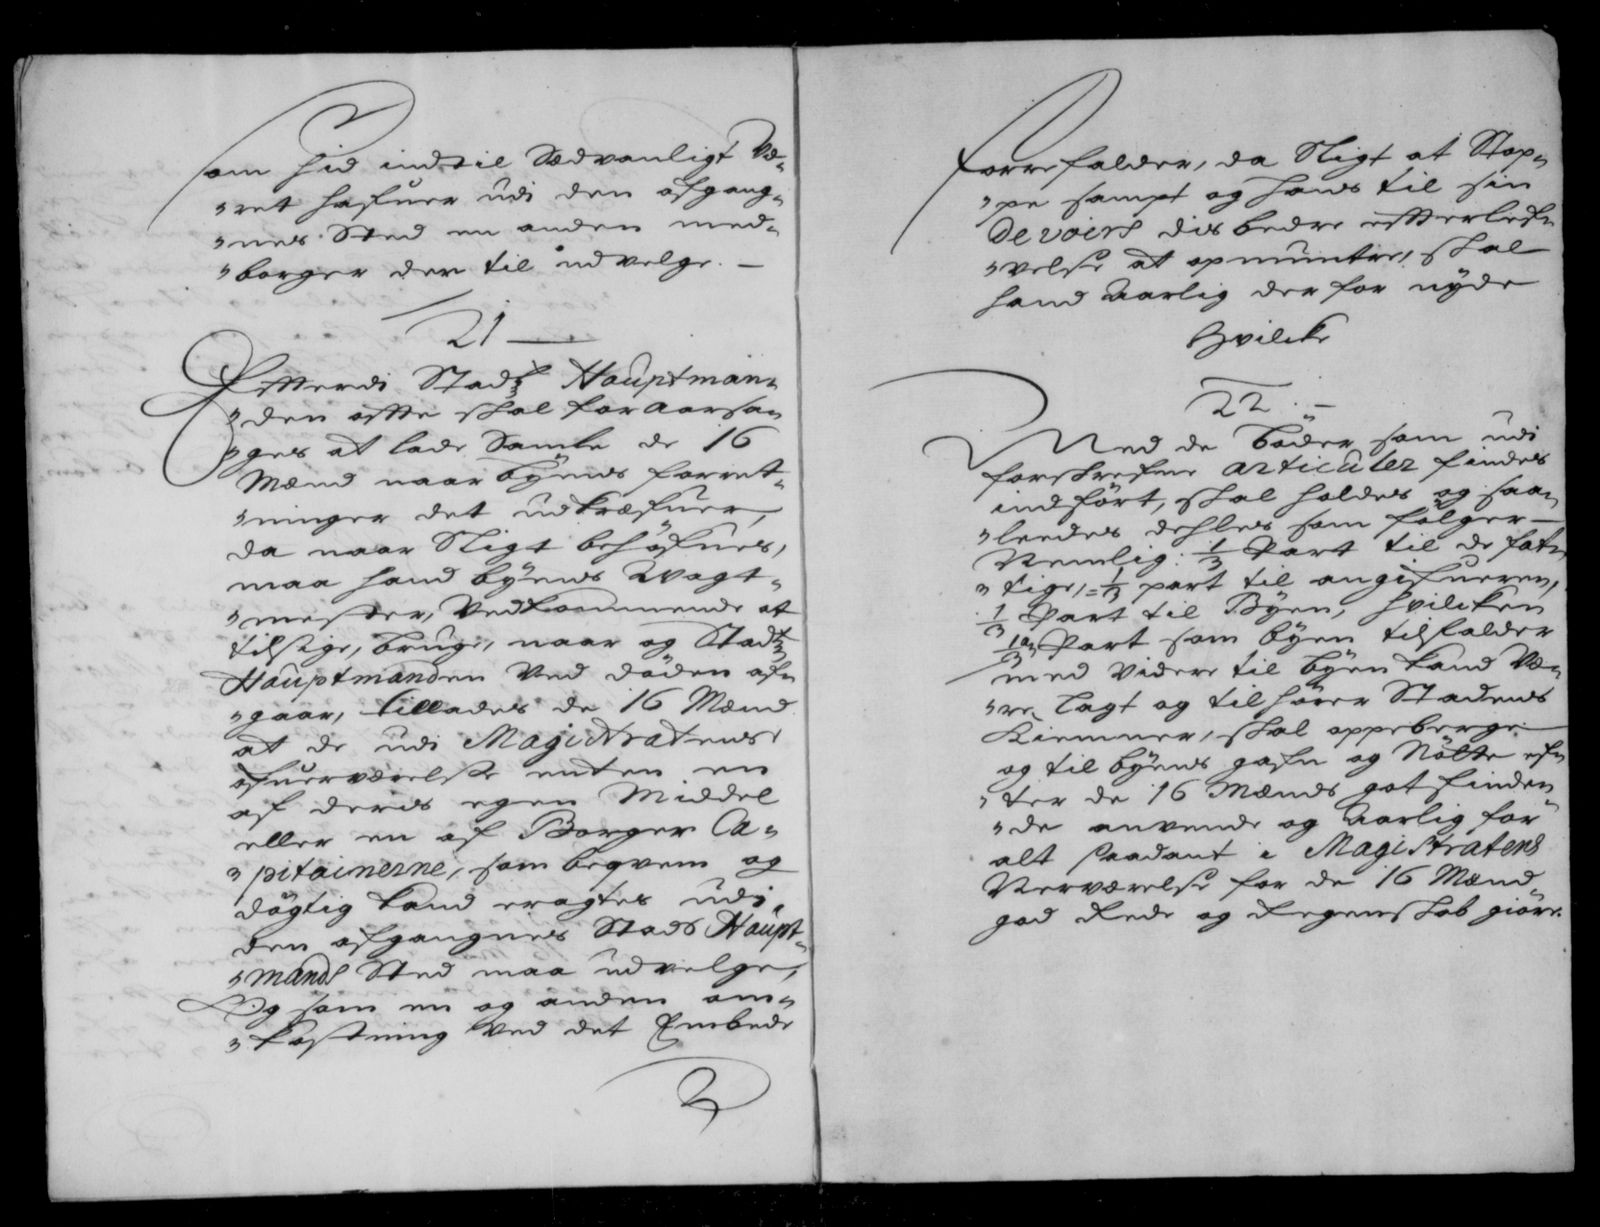 som hid indtil Sædvanligt Væ-
"ret hafuer udi den afgang-
"nes Sted en anden med-
"borger der til udvelge. —
21 —
Efterdi Stads Hauptman-
"den ofte skal foraarsa-
"ges at lade Samle de 16
Mænd naar byens forret-
"ninger det udkræfuer,
da naar Sligt behöfues,
maa hand byens Wagt-
"mester, Vedkommende at
tilsige, bruge, naar og Stads
Hauptmanden Ved döden af-
"gaar, tillades de 16 Mænd
at de udi Magistratens
ofuerværelse enten en
af deris egen Middel
eller en af Borger Ca-
"pitainerne, som beqvem og
dögtig kand eragtes udi
den afgangnes Stads Haupt-
"mands Sted maa udvelge,
Og som en og anden om-
"kostning Ved det Embede
forrefalder, da Sligt at Stop-
"pe sampt og hans til sin
devoirs dis bedre efterlef-
"velse at opmuntre, skal
hand Aarlig der for nyde
Hvilcke
22. —
Med de böder som udi
forskrefne articuler findes
indfört, skal holdes og saa-
"leedes dehles som fölger —
Nemlig: 1/3 Part til de fat-
"tige, = 1/3 part til angifueren,
1/3 Part til Byen, hvilcken
1/3 Part som byen tilfalder
med Videre til byen kand Væ-
"re lagt og tilhörer Stadens
Kiemner, skal oppeberge
og til byens gafn og Nötte ef-
"ter de 16 Mænds got finden-
"de anvende og Aarlig for
alt saadant i Magistratens
Nerværelse for de 16 Mænd
god Rede og Regenskab giöre.